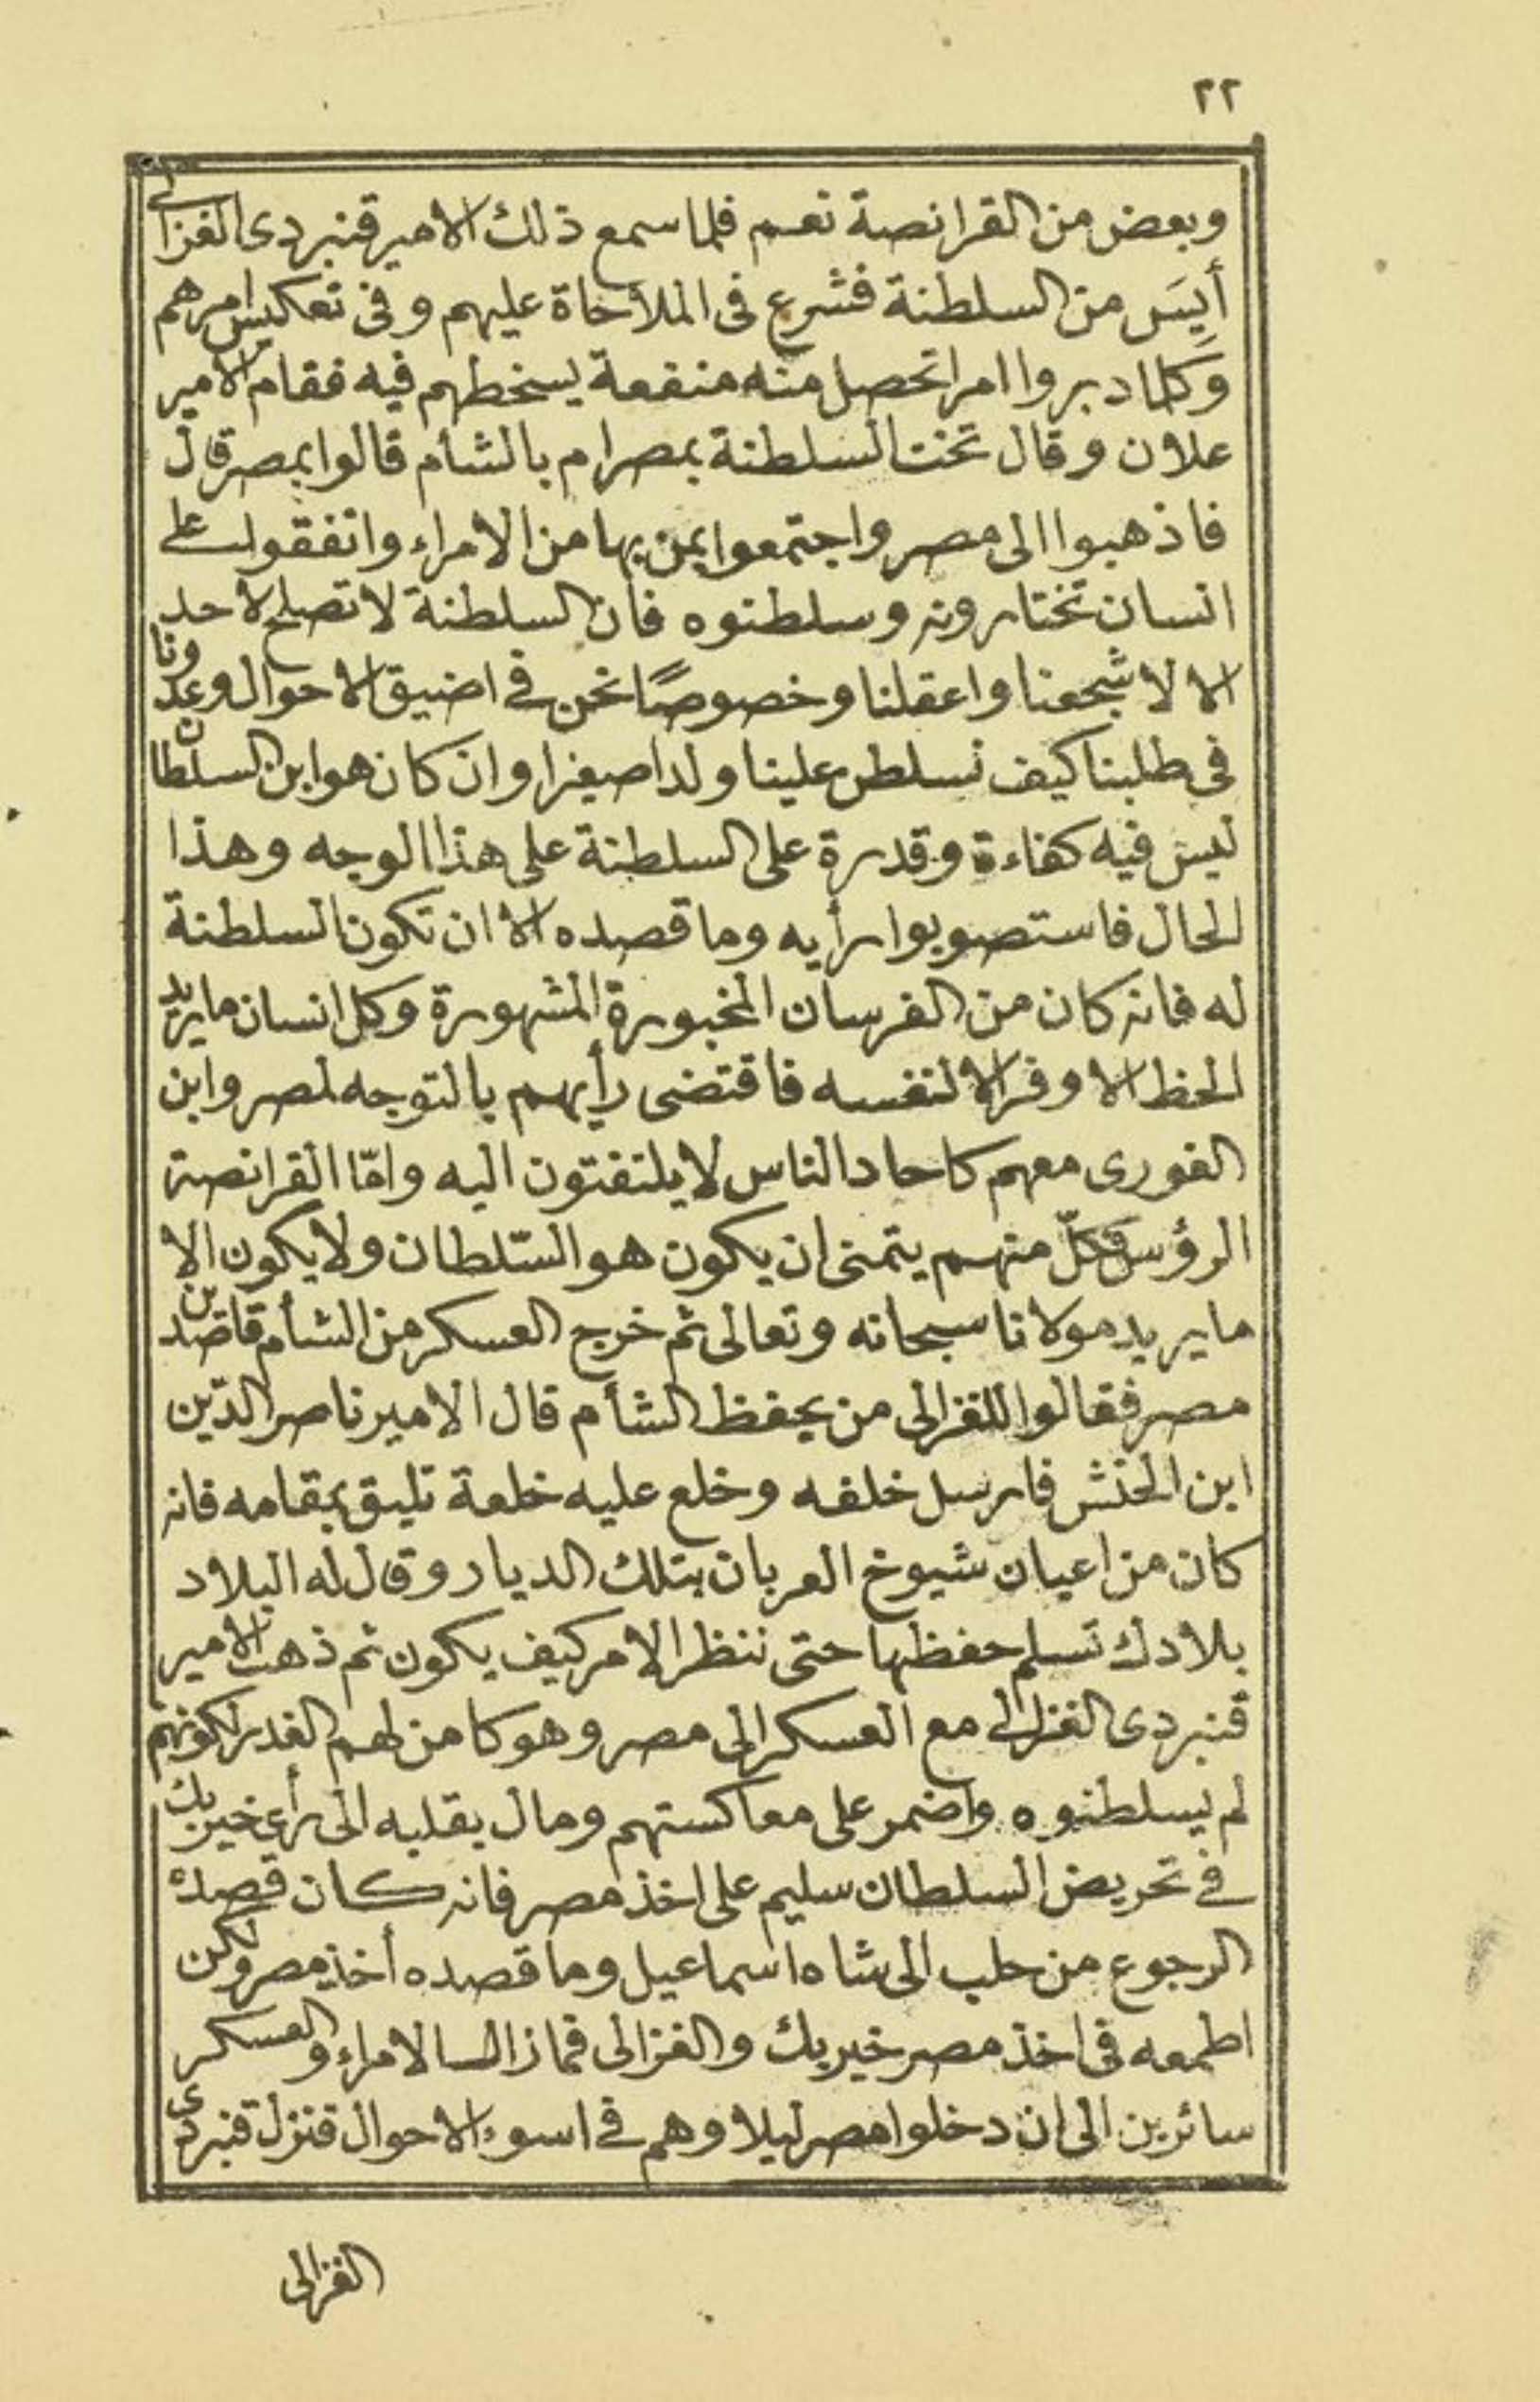 ٢٢
وبعض من القرانصة نعم فلما سمع ذلك الامير قنبردى الغزالى
أيِسَ من السلطنة فشرع فى الملاخاة عليهم وفى تعكيس امرهم
وكلما دبروا امرا تحصل منه منفعة يسخطهم فيه فقام الامير
علان وقال تخت السلطنة بمصر ام بالشأم قالوا بمصر قال
فاذهبوا الى مصر واجتمعوا بمن بها من الامراء واتفقوا على
انسان تختارونه وسلطنوه فان السلطنة لا تصلح لاحد
الا لاشجعنا واعقلنا وخصوصًا نحن فى اضيق الاحوال وعدونا
فى طلبنا كيف نسلطن علينا ولدا صغيرا وان كان هو ابن السلطان
ليس فيه كفاءة وقدرة على السلطنة على هذا الوجه وهذا
الحال فاستصوبوا رأيه وما قصده الا ان تكون السلطنة
له فانه كان من الفرسان المخبورة المشهورة وكل انسان ما يريد
الحظ الاوفر الا لنفسه فاقتضى رأيهم بالتوجه لمصر وابن
الغورى معهم كاحاد الناس لا يلتفتون اليه وامّا القرانصة
الرؤس فكلّ منهم يتمنى ان يكون هو السّلطان ولا يكون الا
ما يريد مولانا سبحانه وتعالى ثم خرج العسكر من الشأم قاصدين
مصر فقالوا للغزالى من يحفظ الشأم قال الامير ناصر الدّين
ابن الحنش فارسل خلفه وخلع عليه خلعة تليق بمقامه فانه
كان من اعيان شيوخ العربان بتلك الديار وقال له البلاد
بلادك تسلم حفظها حتى ننظر الامر كيف يكون ثم ذهب الامير
قنبردى الغزالى مع العسكر الى مصر وهو كامن لهم الغدر لكونهم
لم يسلطنوه واضمر على معاكستهم ومال بقلبه الى رأى خير بك
فى تحريض السلطان سليم على اخذ مصر فانه كان قصده
الرجوع من حلب الى شاه اسماعيل وما قصده أخذ مصر ولكن
اطمعه فى اخذ مصر خير بك والغزالى فما زالت الامراء والعسكر
سائرين الى ان دخلوا مصر ليلا وهم فى اسوء الاحوال فنزل قنبردى
الغزالى